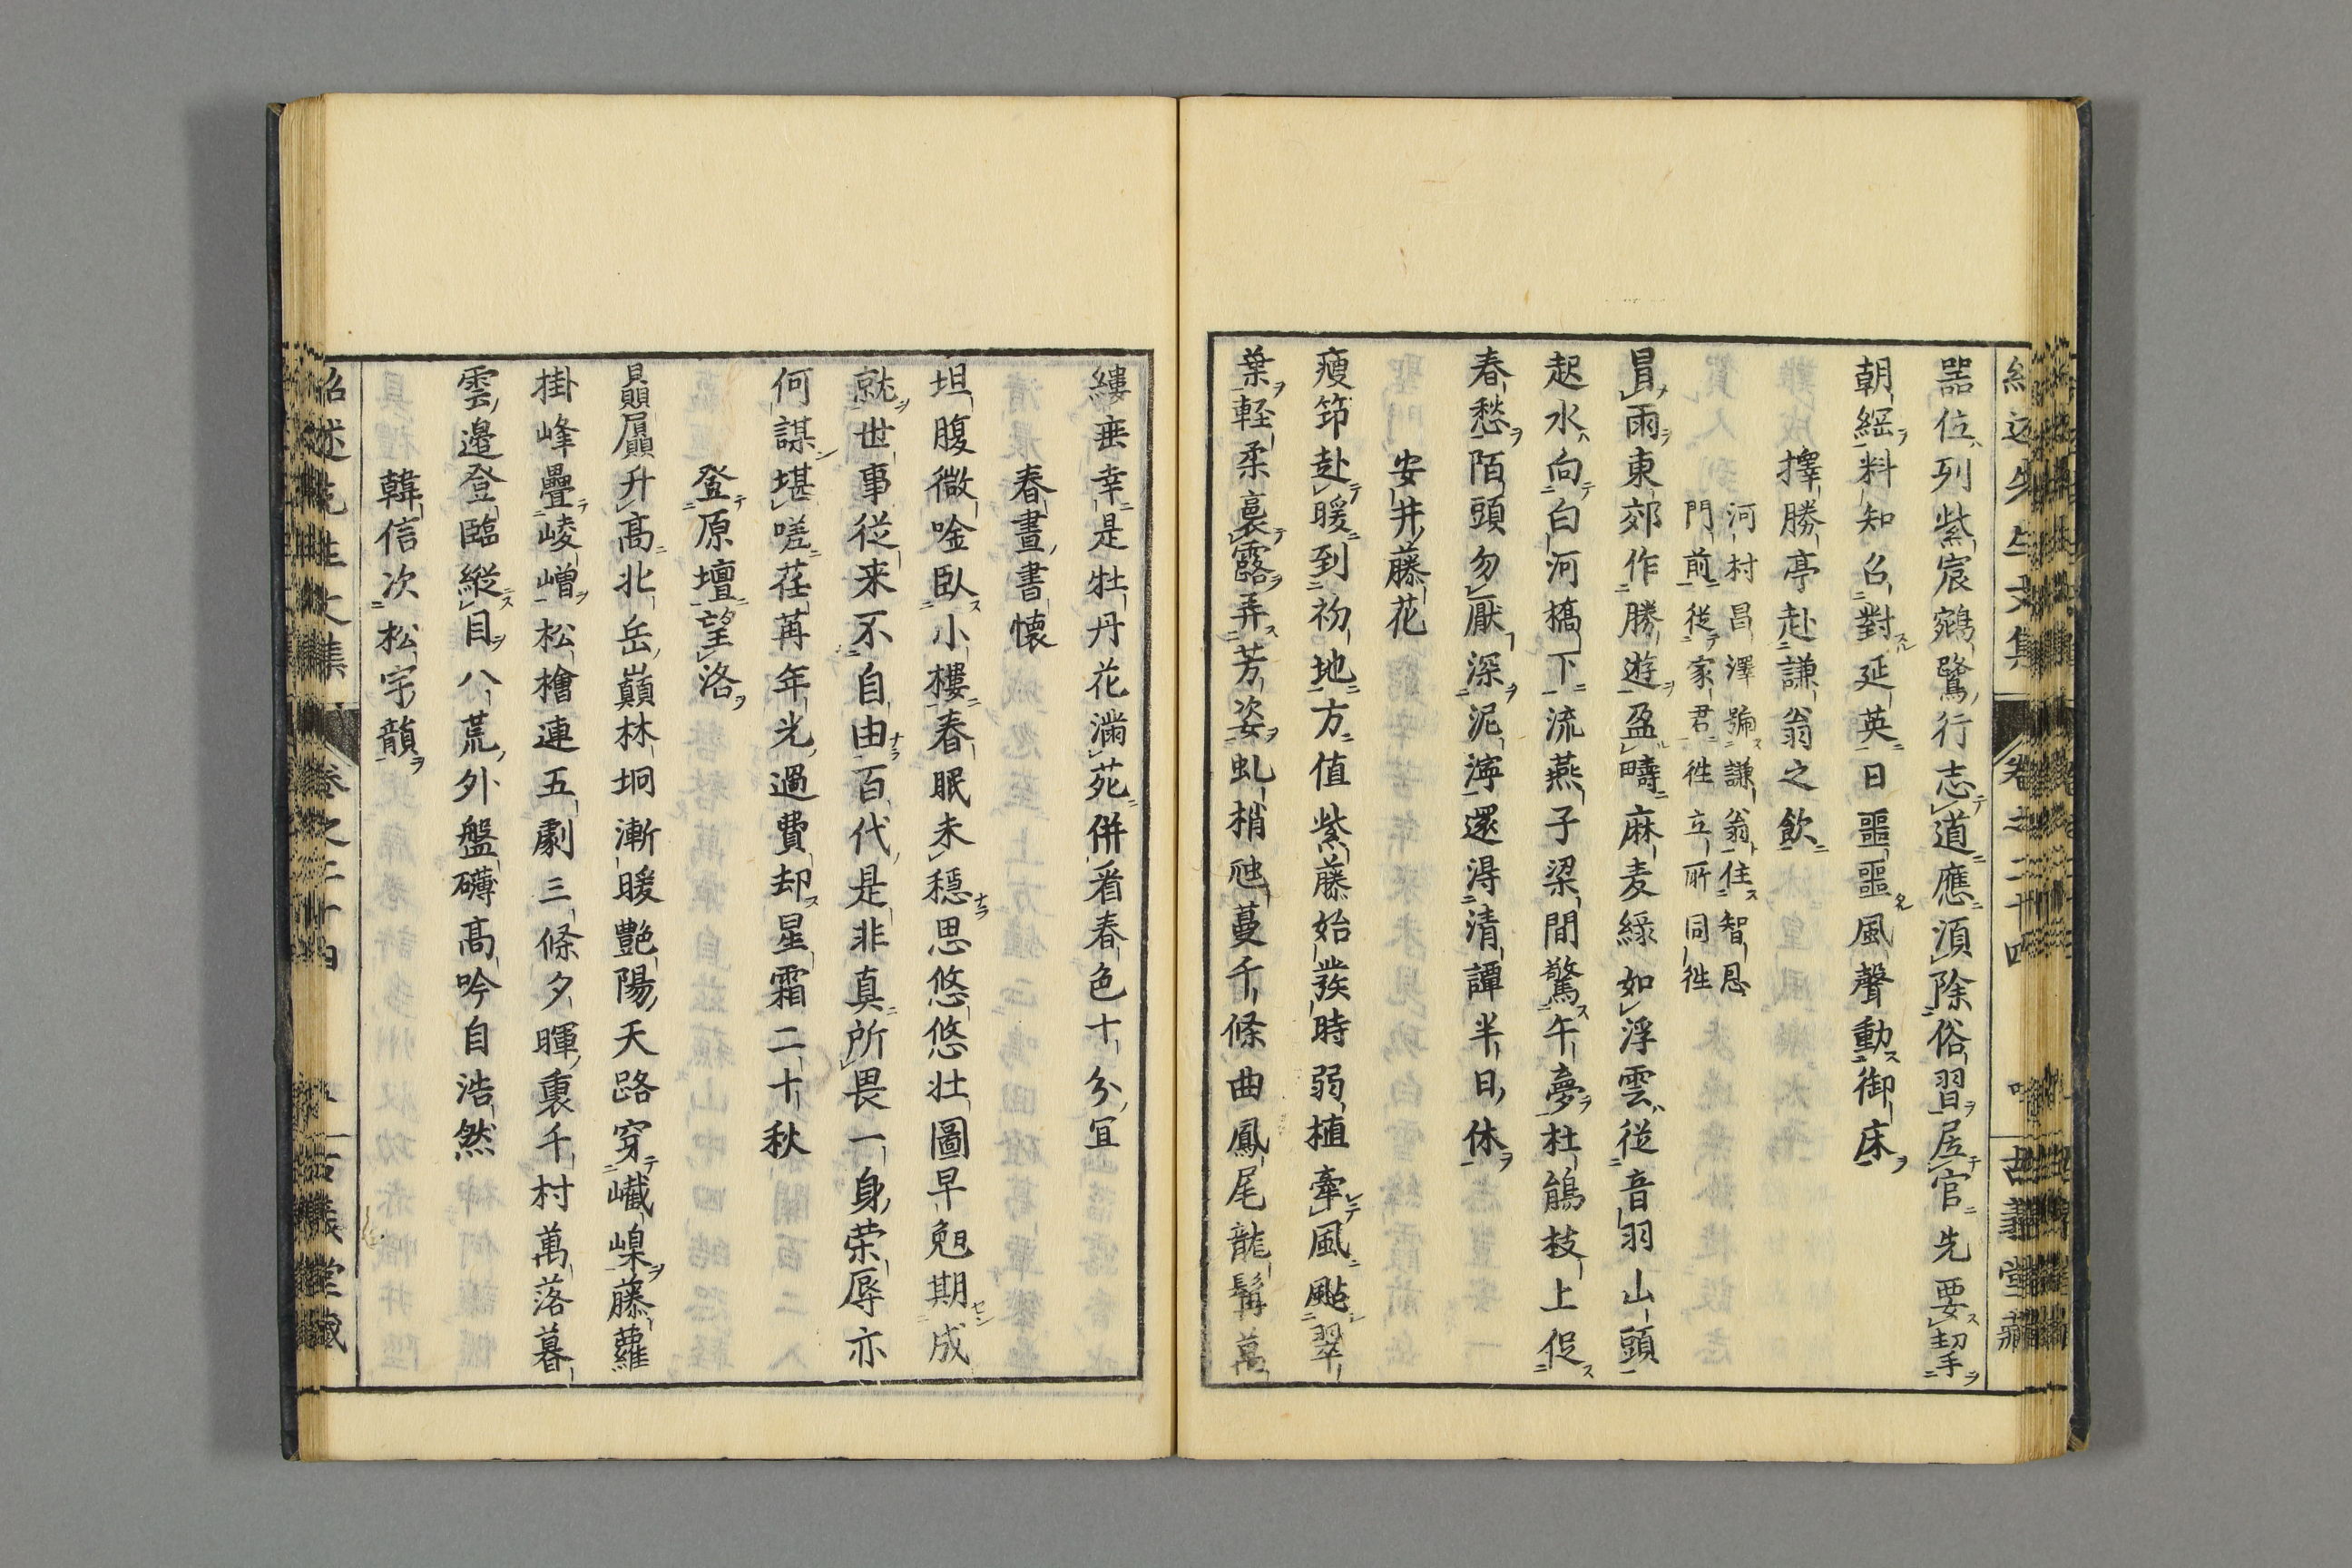 器位列紫宸鵷鷺行志道應須除俗習居官先要挈
朝綱料知召對延英日噩噩風聲動御床
擇勝亭赴謙翁之飲
河村昌澤號謙翁住智恩
門前從家君徃立所同徃
冒雨東郊作勝遊盈疇麻麦緑如浮雲從音羽山頭
起水向白河橋下流燕子梁間驚午夢杜鵑枝上促
春愁陌頭勿厭深泥濘還得清譚半日休
安井藤花
瘦筇赴暖到礿地方值紫藤始發時弱植牽風颭翠
葉輕柔裛露弄芳姿虬梢虵蔓千條曲鳳尾龍髯萬
縷垂幸是牡丹花滿苑併看春色十分宜
春晝書懷
坦腹微唫臥小樓春眠未穩思悠悠壯圖早勉期成
就世事從来不自由百代是非真所畏一身荣辱亦
何謀堪嗟荏苒年光過費却星霜二十秋
登原壇望洛
贔屭升高北岳巔林坰漸暖艷陽天路穿巇嵲藤蘿
掛峰疊崚嶒松檜連五劇三條夕暉裏千村萬落暮
雲邊登臨縱目八荒外盤礴高吟自浩然
韓信次松宇韻
紹述先生文集 卷之二十四 古義堂藏